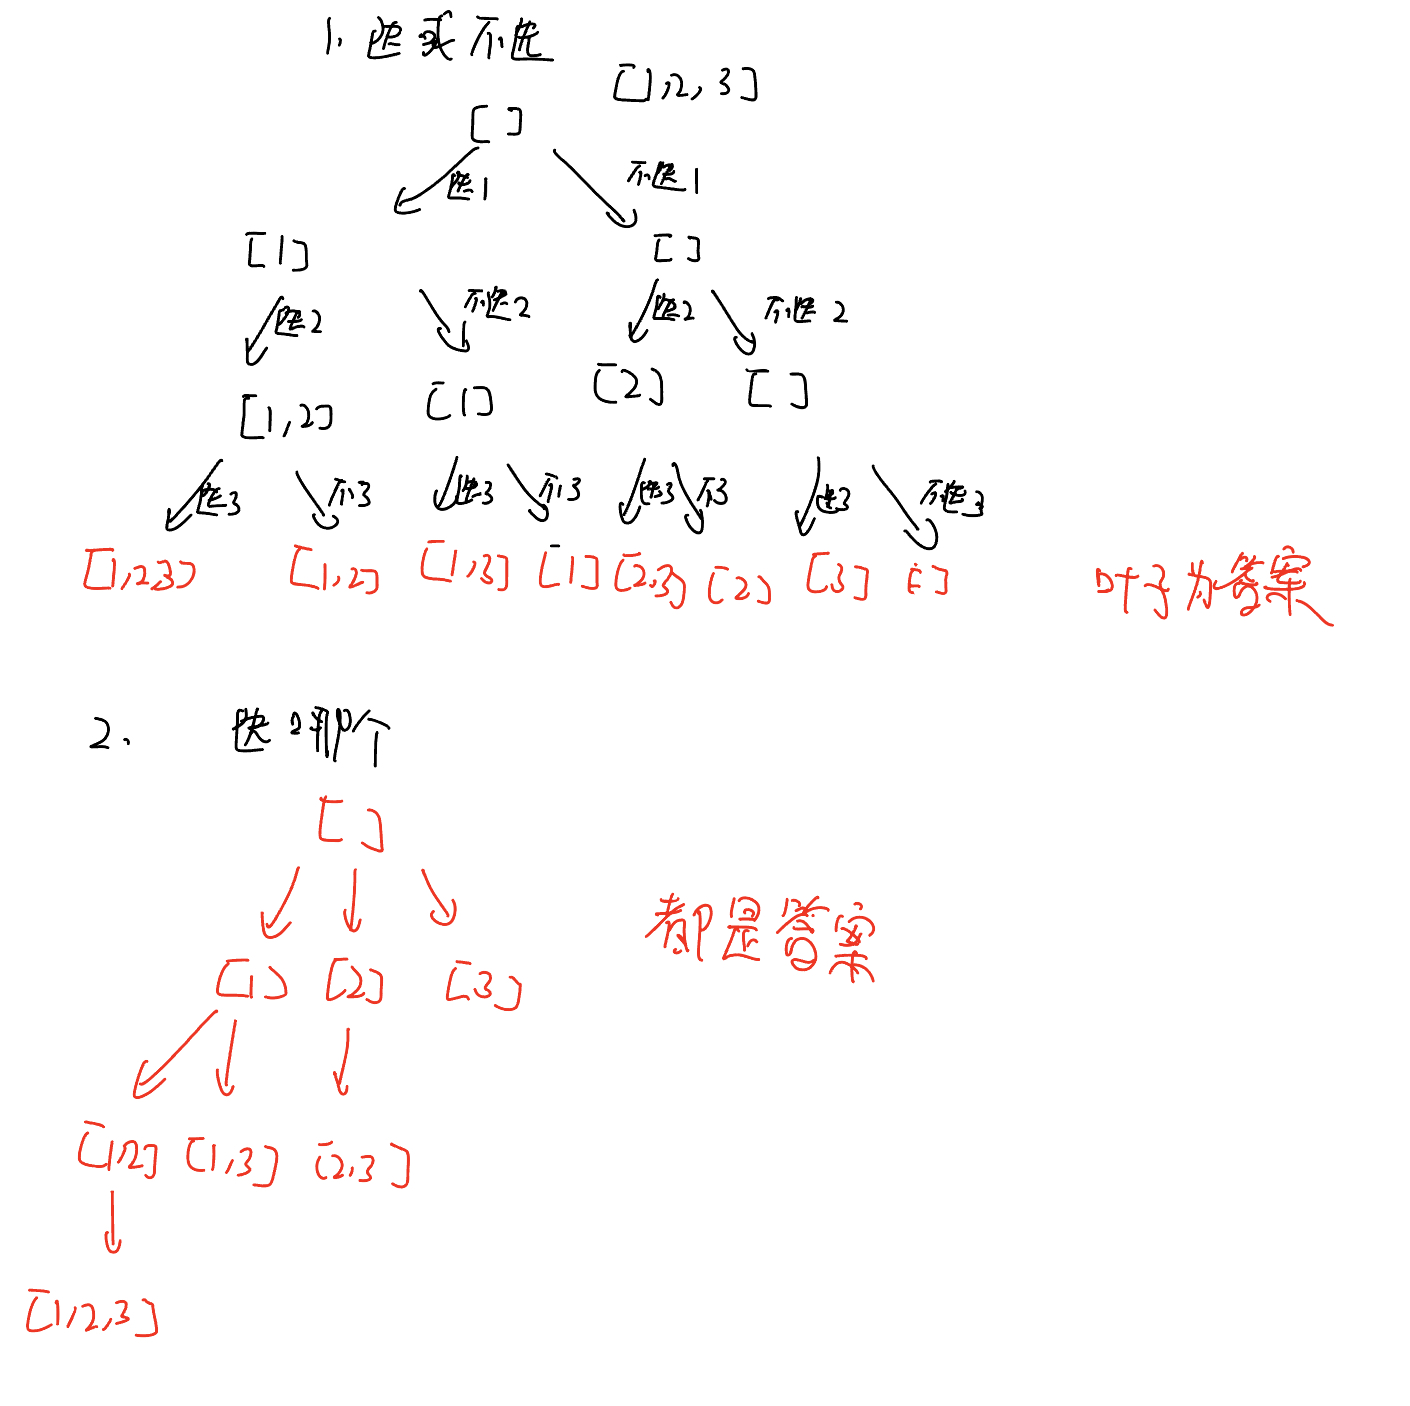 1. 选或不选
[1,2,3]
[ ]
选1 不选1
[1] [ ]
选2 不选2 选2 不选2
[1,2] [1] [2] [ ]
选3 不3 选3 不3 选3 不3 选3 不选3
[1,2,3] [1,2] [1,3] [1] [2,3] [2] [3] [ ] 叶子为答案
2. 选哪个
[ ]
都是答案
[1] [2] [3]
[1,2] [1,3] [2,3]
[1,2,3]